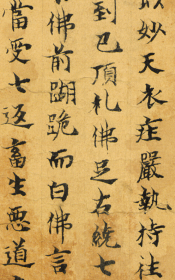 以妙天衣庄嚴執持往
到已頂礼佛足右繞七
佛前蹦跪而白佛言
當受七返畜生悪道